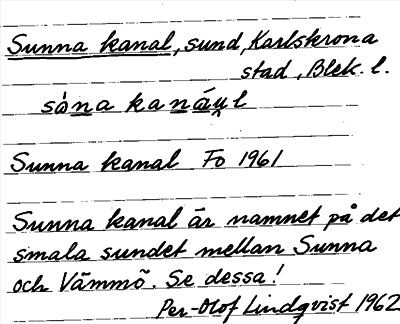 Sunna kanal, sund, Karlskrona
stad, Blek. l.
Sunna kanal Fo 1961
Sunna kanal är namnet på det
smala sundet mellan Sunna
och Vämmö. Se dessa!
Per-Olof Lindqvist 1962